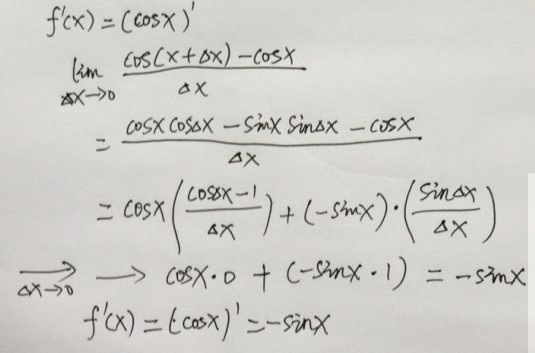 f'(x) = (cosx)'
lim Δx→0 (cos(x+Δx) - cosx) / Δx
= (cosx cosΔx - sinx sinΔx - cosx) / Δx
= cosx ((cosΔx - 1) / Δx) + (-sinx) · (sinΔx / Δx)
⟶ Δx→0 ⟶ cosx·0 + (-sinx·1) = -sinx
f'(x) = (cosx)' = -sinx